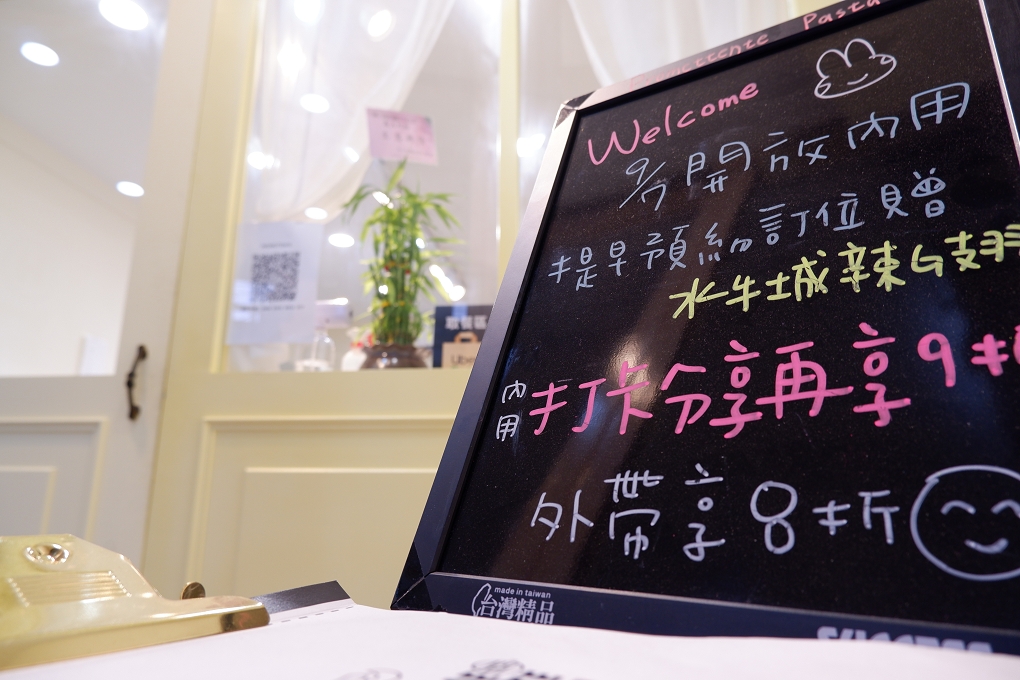 Pasta
Welcome
9/7 開放內用
提早預約訂位贈
水牛城辣G支
內用
打卡分享再享9折
外帶享8折
取餐區
made in taiwan
台灣精品